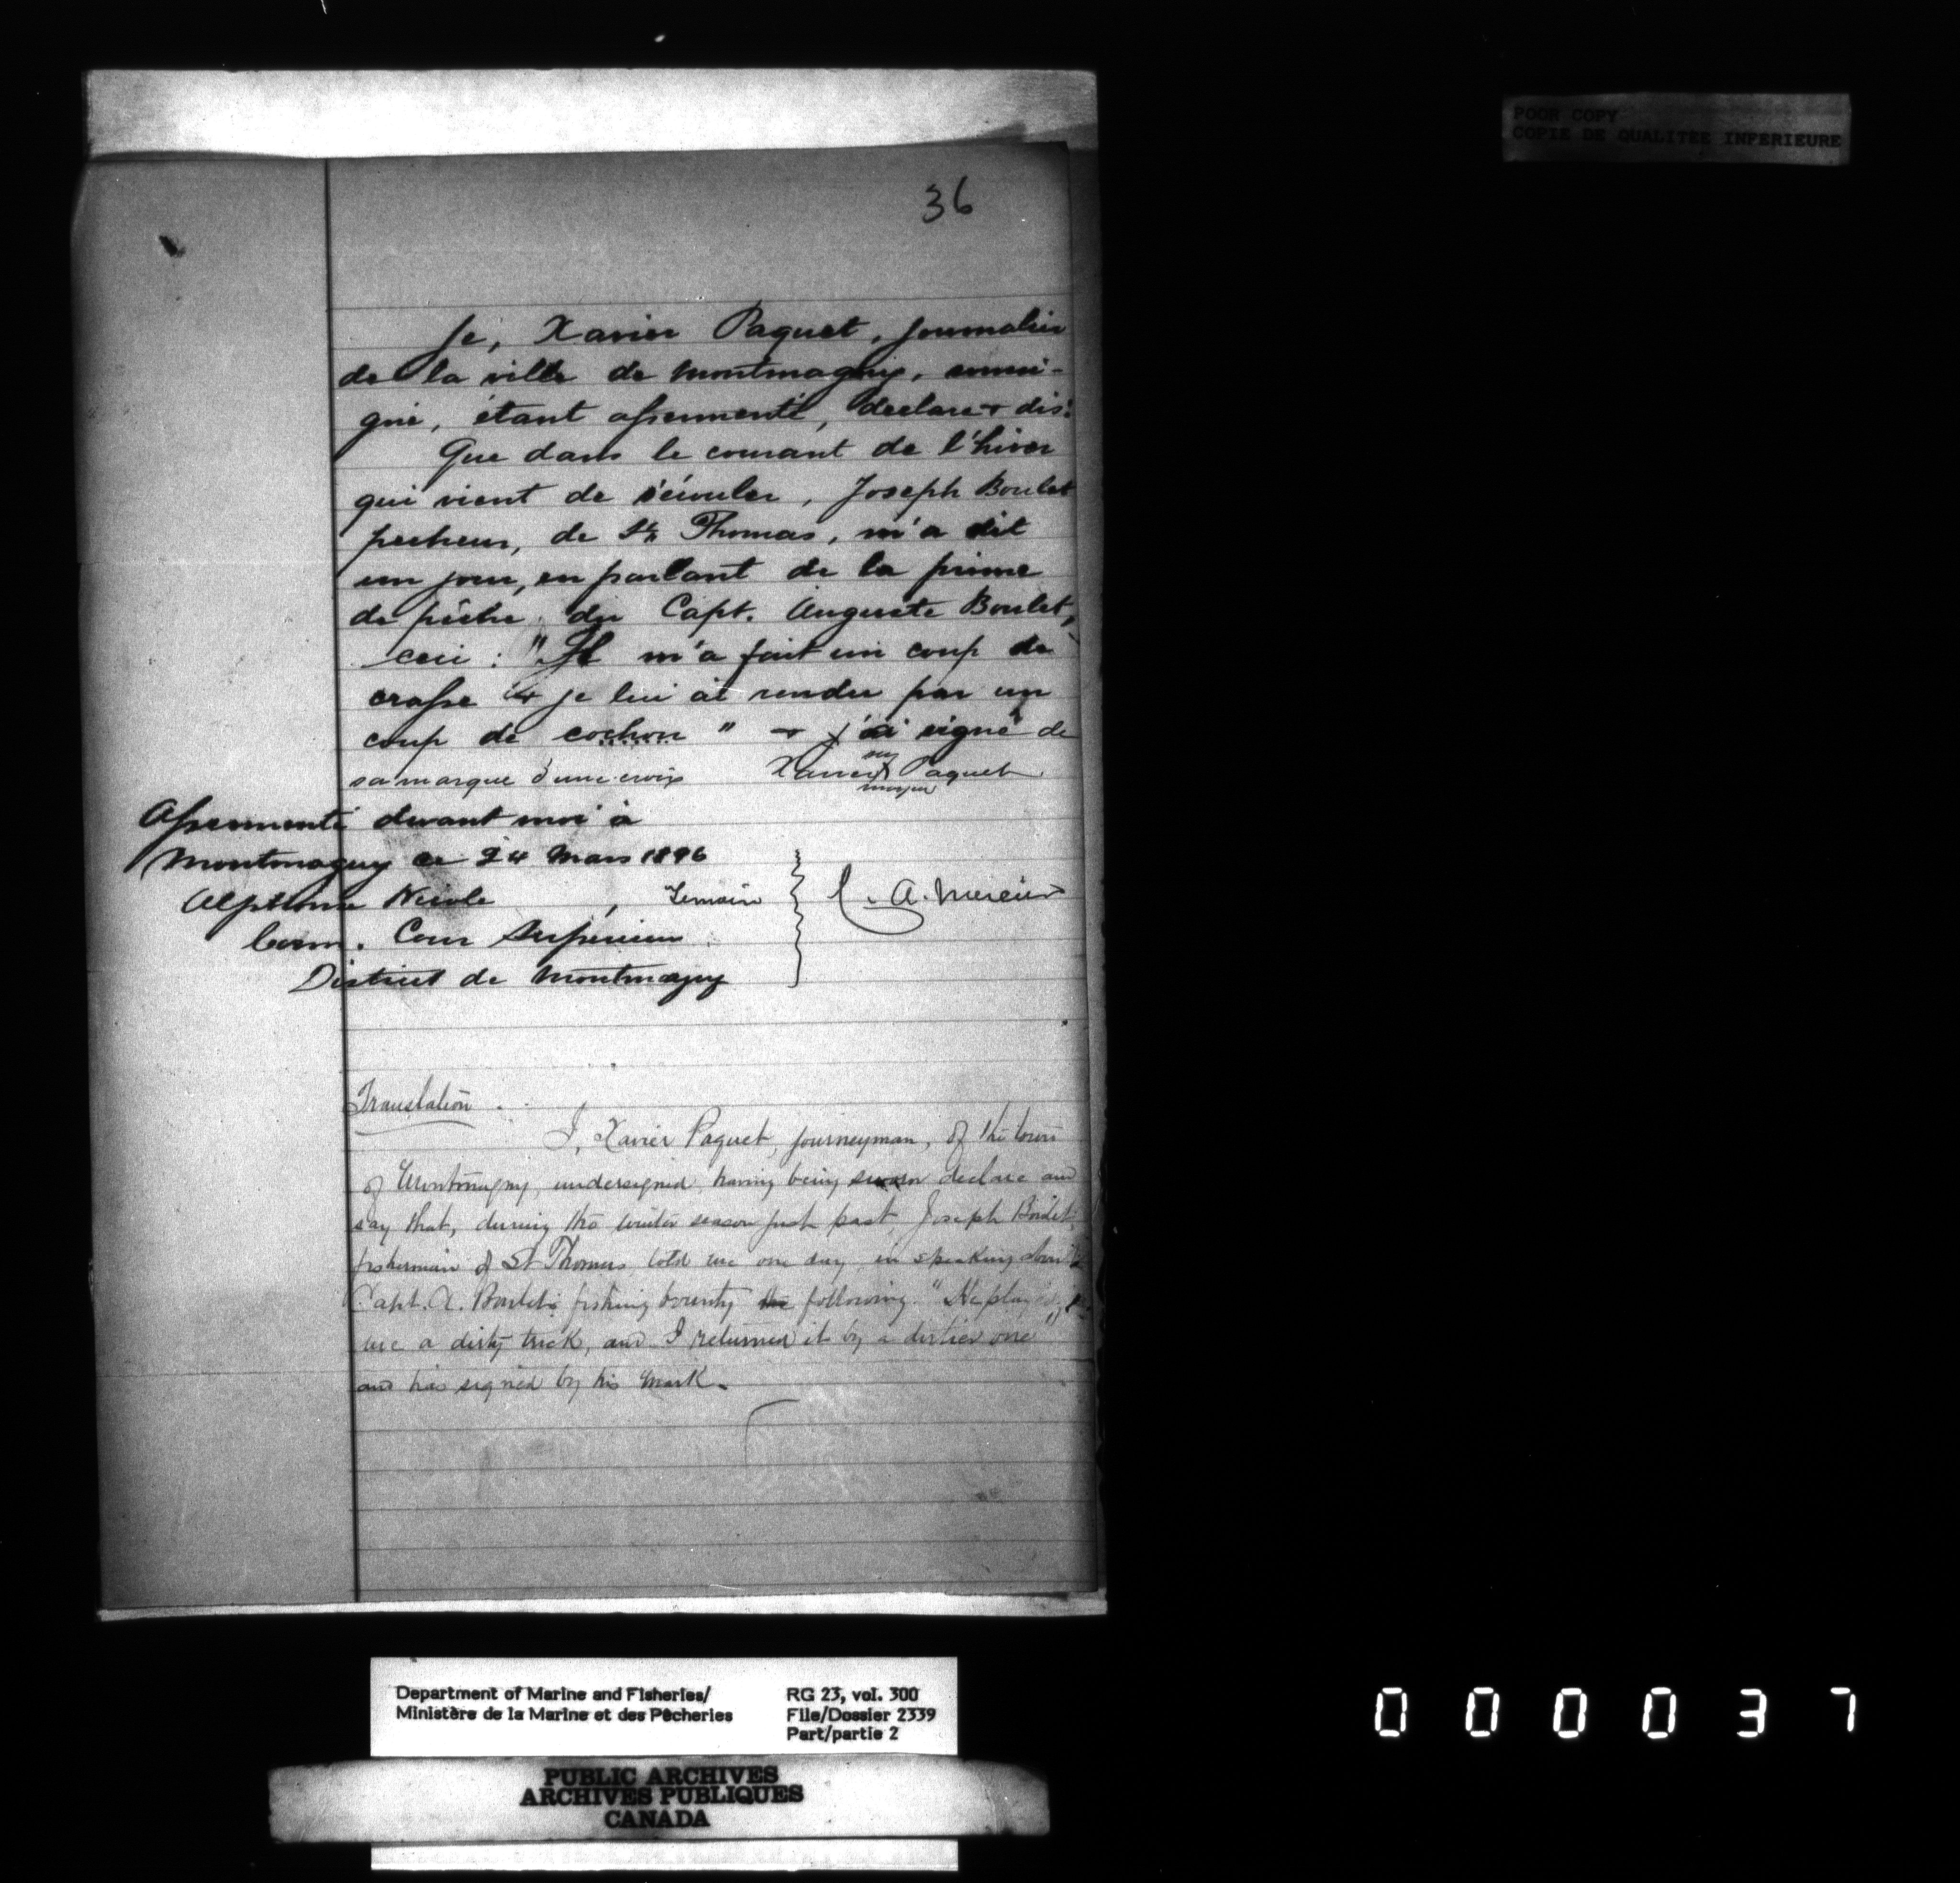 POOR COPY
COPIE DE QUALITEE INFERIEURE
36
Je, Xavier Paquet, journalier
de la ville de Montmagny, soussi-
gné, étant assermenté, declare & dis:
Que dans le courant de l'hiver
qui vient de s'écouler, Joseph Boulet
pecheur, de St Thomas, m'a dit
un jour, en parlant de la prime
de pêche du Capt. Auguste Boulet,
ceci : "Il m'a fait un coup de
crasse & je lui ai rendu par un
coup de cochon" & j'ai signé de
sa marque d'une croix Xavier X Paquet
Assermenté devant moi à
Montmagny ce 24 Mars 1896
Alphonse Nicole, Temoin
Com. Cour Superieure
District de Montmagny
A. Mercier
Translation
I, Xavier Paquet, journeyman, of the town
of Montmagny, undersigned, having being sworn declare and
say that, during the winter season just past, Joseph Boulet,
fisherman of St Thomas, told me one day, in speaking
Capt. A. Boulet's fishing bounty the following "He played
me a dirty trick, and I returned it by a dirtier one"
and has signed by his mark.
Department of Marine and Fisheries/
Ministère de la Marine et des Pêcheries
RG 23, vol. 300
File/Dossier 2339
Part/partie 2
PUBLIC ARCHIVES
ARCHIVES PUBLIQUES
CANADA
000037